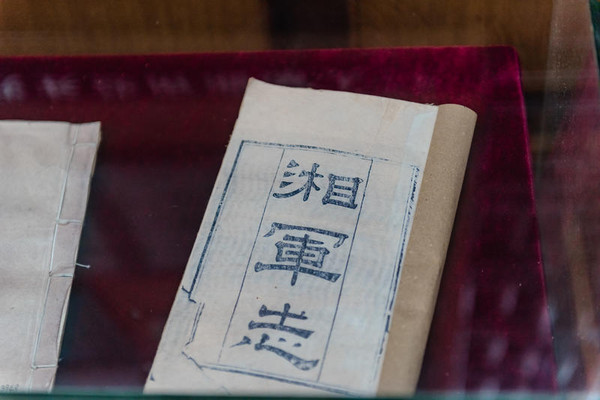 湘
軍
志